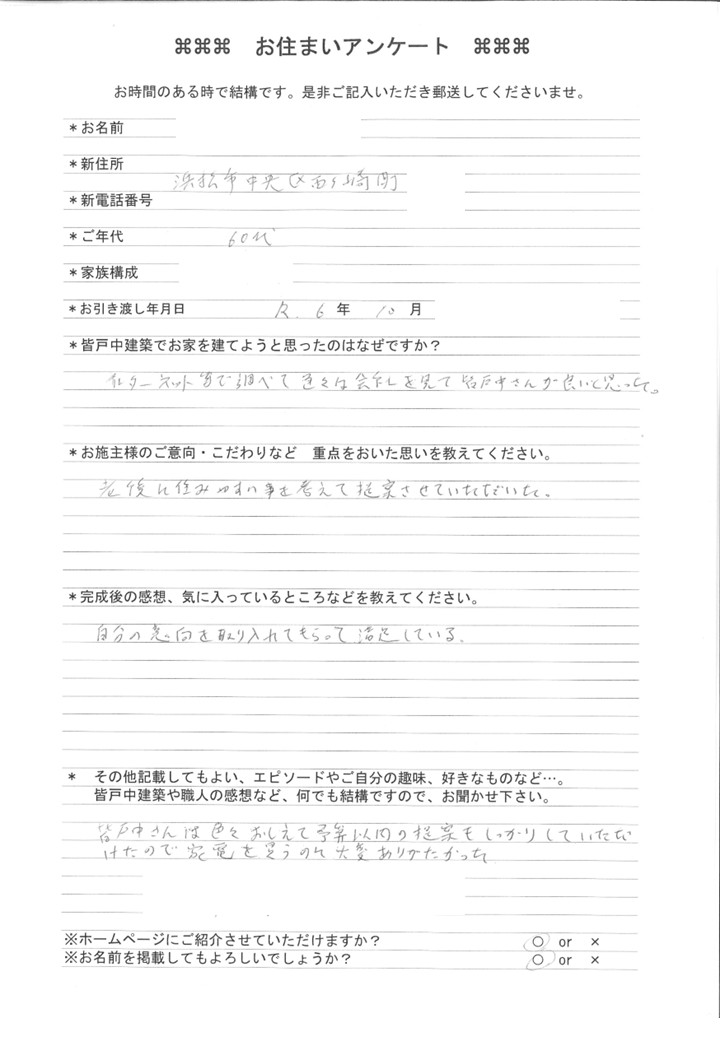 ⌘⌘⌘ お住まいアンケート ⌘⌘⌘
お時間のある時で結構です。是非ご記入いただき郵送してくださいませ。
＊お名前
＊新住所
浜松市中央区西ヶ崎町
＊新電話番号
＊ご年代 60代
＊家族構成
＊お引き渡し年月日 R.6年 10月
＊皆戸中建築でお家を建てようと思ったのはなぜですか？
インターネット等で調べて色々な会社を見て皆戸中さんが良いと思って。
＊お施主様のご意向・こだわりなど 重点をおいた思いを教えてください。
老後に住みやすい事を考えて提案させていただいた。
＊完成後の感想、気に入っているところなどを教えてください。
自分の意向を取り入れてもらって満足している。
＊ その他記載してもよい、エピソードやご自分の趣味、好きなものなど…。
皆戸中建築や職人の感想など、何でも結構ですので、お聞かせ下さい。
皆戸中さんは色々おしえて予算以内の提案もしっかりしていただ
けたので家電を買うのに大変ありがたかった
※ホームページにご紹介させていただけますか？ ○ or ×
※お名前を掲載してもよろしいでしょうか？ ○ or ×